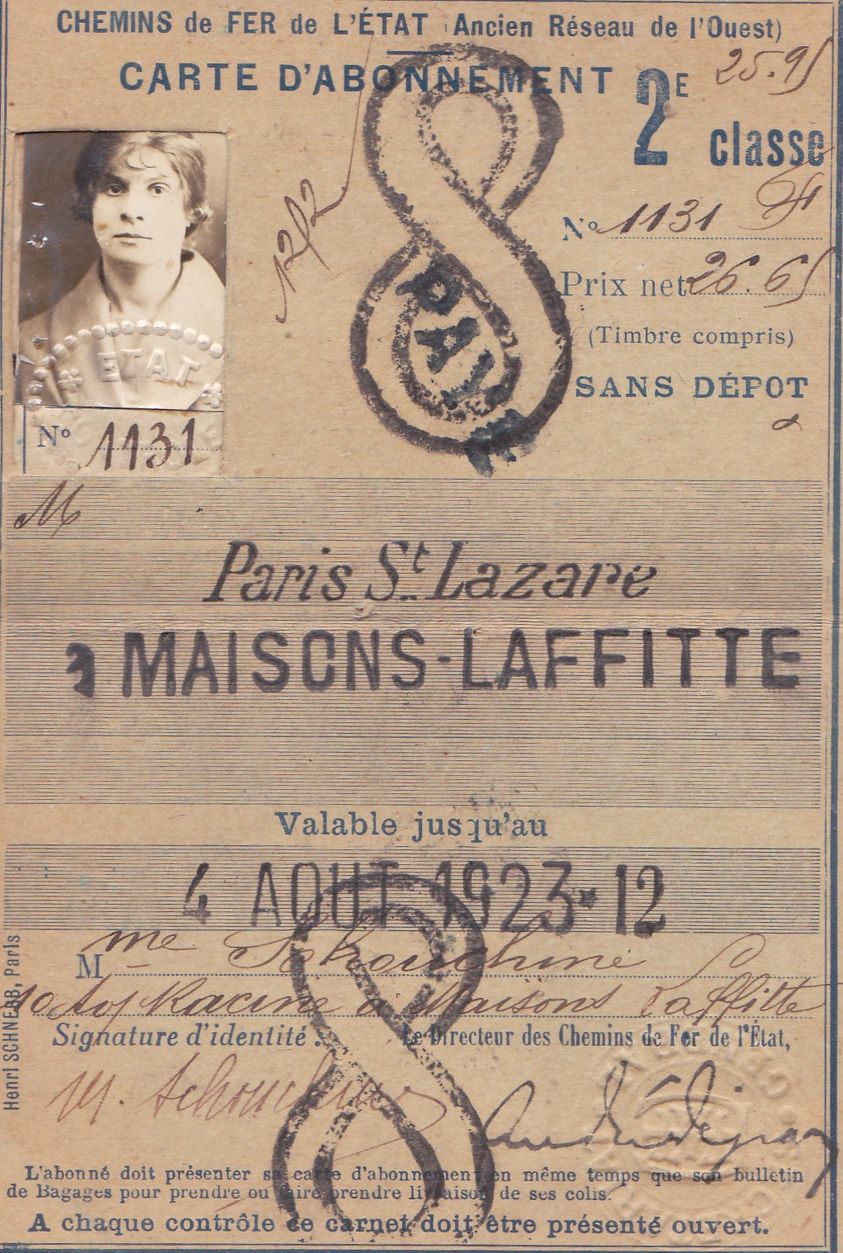 CHEMINS de FER de L'ÉTAT (Ancien Réseau de l'Ouest)
CARTE D'ABONNEMENT
2E classe
25.95
12/2
No 1131
Prix net 26.65
(Timbre compris)
SANS DÉPOT
PAYÉ
ETAT
No 1131
M
Paris St. Lazare
à MAISONS-LAFFITTE
Valable jusqu'au
4 AOUT 1923*12
Mme Schouchine
Racine à Maisons Laffitte
Signature d'identité : Le Directeur des Chemins de Fer de l'État,
M. Schouchine
L'abonné doit présenter sa carte d'abonnement en même temps que son bulletin
de Bagages pour prendre ou faire prendre livraison de ses colis.
A chaque contrôle ce carnet doit être présenté ouvert.
Henri SCHNEBB, Paris